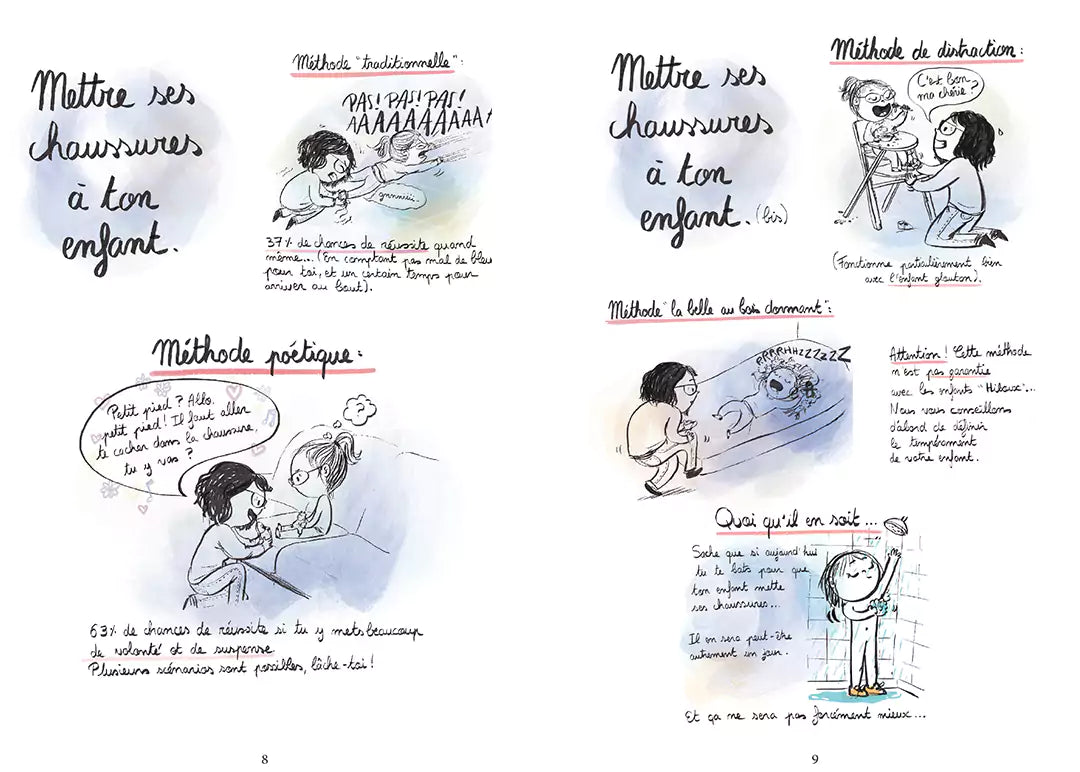 Mettre ses
chaussures
à ton
enfant.
Méthode "traditionnelle":
PAS! PAS! PAS!
AAAAAAAAAA
gnnniii
37% de chances de réussite quand
même... (En comptant pas mal de bleu
pour toi, et un certain temps pour
arriver au bout).
Méthode poétique:
Petit pied? Allo,
petit pied! Il faut aller
te cacher dans la chaussure,
tu y vas?
?
63% de chances de réussite si tu y mets beaucoup
de volonté et de suspense.
Plusieurs scénarios sont possibles, lâche-toi!
8
Mettre ses
chaussures
à ton
enfant. (bis)
Méthode de distraction:
C'est bon
ma chérie?
(Fonctionne particulièrement bien
avec l'enfant glouton).
Méthode "la belle au bois dormant":
RRRRHHZZZZZZ
Attention! Cette méthode
n'est pas garantie
avec les enfants "Hiboux"...
Nous vous conseillons
d'abord de définir
le tempérament
de votre enfant.
Quoi qu'il en soit...
Sache que si aujourd'hui
tu te bats pour que
ton enfant mette
ses chaussures...
Il en sera peut-être
autrement un jour.
Et ça ne sera pas forcément mieux...
9